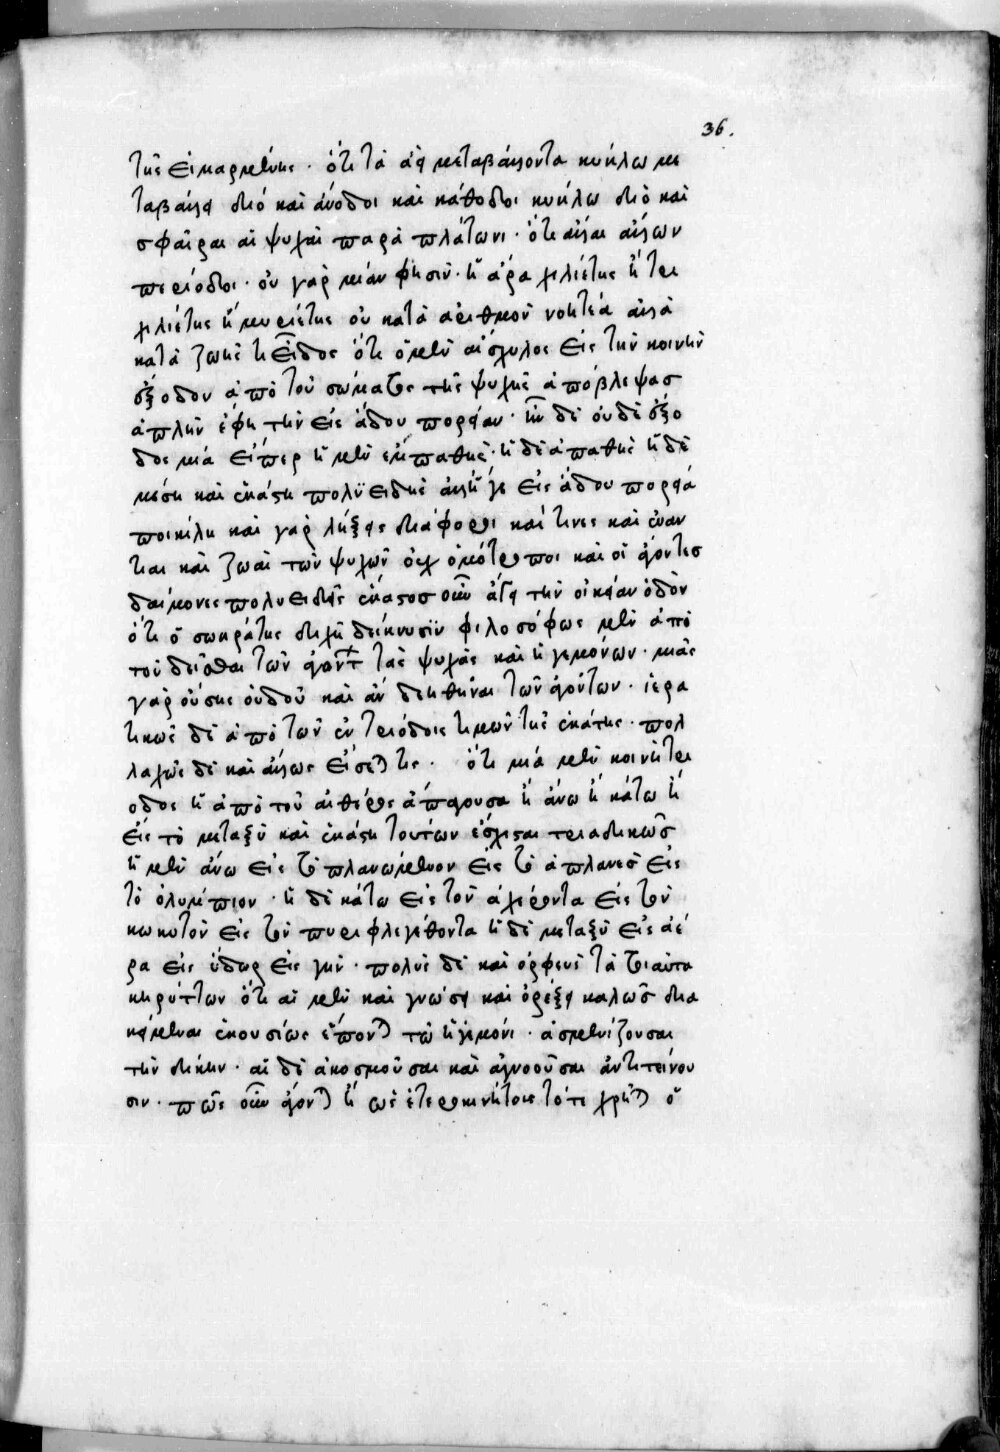 36.
τῆς εἱμαρμένης · ὅτι τὰ ἀεὶ μεταβάλλοντα κύκλω με
ταβάλλει διὸ καὶ ἄνοδοι καὶ κάθοδοι κύκλω διὸ καὶ
σφαῖραι αἱ ψυχαὶ παρὰ πλάτωνι · ὅτι ἄλλαι ἄλλων
περίοδοι · οὐ γὰρ μίαν φησὶν · ἢ ἄρα χιλιέτης ἢ τρι
χιλιέτης ἢ μυριέτης οὐ κατὰ ἀριθμὸν νοητέα ἀλλὰ
κατὰ ζωῆς τι εἶδος ὅτι ὁ μὲν αἰσχύλος εἰς τὴν κοινὴν
ἔξοδον ἀπὸ τοῦ σώματος τῆς ψυχῆς ἀπόβλεψας
ἁπλῆν ἔφη τὴν εἰς ἅδου πορείαν · ἦν δὲ οὐδὲ ἔξο
δος μία εἴπερ ἡ μὲν ἐμπαθὴς · ἡ δὲ ἀπαθὴς ἡ δὲ
μέση καὶ ἑκάστη πολυϊειδὴς ἀλλ' ἥ γε εἰς ἅδου πορεία
ποικίλη καὶ γὰρ λήξεις διάφοροι καί τινες καὶ ἐναν
τίαι καὶ ζωαὶ τῶν ψυχῶν οὐχ ὁμότροποι καὶ οἱ ἄγοντες
δαίμονες πολυειδεῖς ἕκαστος οὖν ἄγει τὴν οἰκείαν ὁδὸν
ὅτι ὁ σωκράτης διχῆ δείκνυσϊν φιλοσόφως μὲν ἀπὸ
τοῦ δεῖσθαι τῶν ἀγόντ τὰς ψυχὰς καὶ ἡγεμόνων · μιᾶς
γὰρ οὔσης ὁδοῦ καὶ ἂν δεηθῆναι τῶν ἀγόντων · ἱερα
τικῶς δὲ ἀπὸ τῶν ἐν τριόδοις τιμῶν τῆς ἑκάτης · πολ
λαχῶς δὲ καὶ ἄλλως εἴσεταί τις · ὅτι μία μὲν κοινὴ τρί
οδος ἡ ἀπὸ τοῦ αἰθέρος ἀπάγουσα ἢ ἄνω ἢ κάτω ἢ
εἰς τὸ μεταξὺ καὶ ἑκάστη τούτων ἔσχισται τριαδικῶς
ἡ μὲν ἄνω εἰς τὸ πλανώμενον εἰς τὸ ἀπλανὲς εἰς
τὸ ὀλύμπιον · ἡ δὲ κάτω εἰς τὸν ἀχέροντα εἰς τὸν
κωκυτὸν εἰς τὸν πυριφλεγέθοντα ἡ δὲ μεταξὺ εἰς ἀέ
ρα εἰς ὕδωρ εἰς γῆν · πολὺς δὲ καὶ ὀρφεὺς τὰ τοιαῦτα
κηρύττων ὅτι αἱ μὲν καὶ γνώσει καὶ ὀρέξει καλῶς δια
κείμεναι ἑκουσίως ἕπονται τῶ ἡγεμόνι · ἀσμενίζουσαι
τὴν δίκην · αἱ δὲ ἀκοσμοῦσαι καὶ ἀγνοοῦσαι ἀντιτείνου
σιν · πῶς οὖν ἄγονται ἢ ὡς ἑτεροκινήτοις τότε χρῆται ὁ